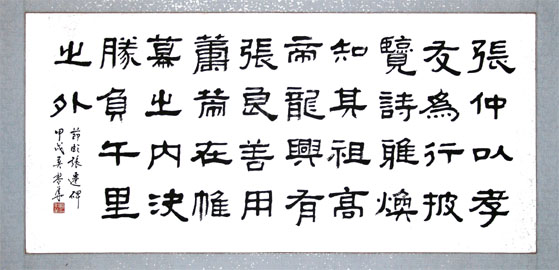 張仲以孝
友為行披
覽詩雅煥
知其祖高
帝龍興有
張良善用
籌策在帷
幕之內決
勝負千里
之外
節臨張遷碑
甲戌